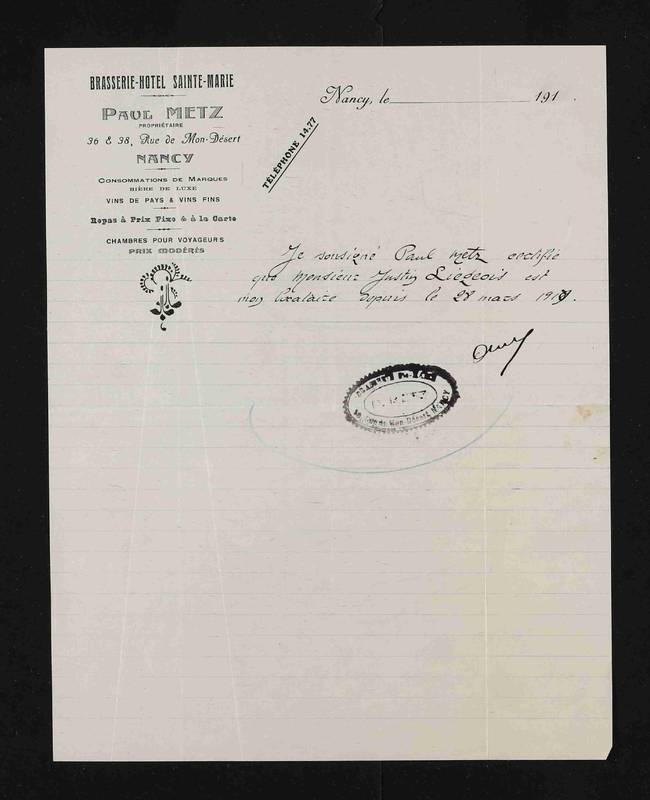 BRASSERIE-HOTEL SAINTE-MARIE
PAUL METZ
PROPRIÉTAIRE
36 & 38, Rue de Mon-Désert
NANCY
CONSOMMATIONS DE MARQUES
BIÈRE DE LUXE
VINS DE PAYS & VINS FINS
Repas à Prix Fixe & à la Carte
CHAMBRES POUR VOYAGEURS
PRIX MODÉRÉS
Nancy, le 191 .
TÉLÉPHONE 14.77
Je sousigné Paul Metz certifie
que Monsieur Justin Liegeois est
mon locataire depuis le 28 mars
Rue de Mon-Désert, NANCY